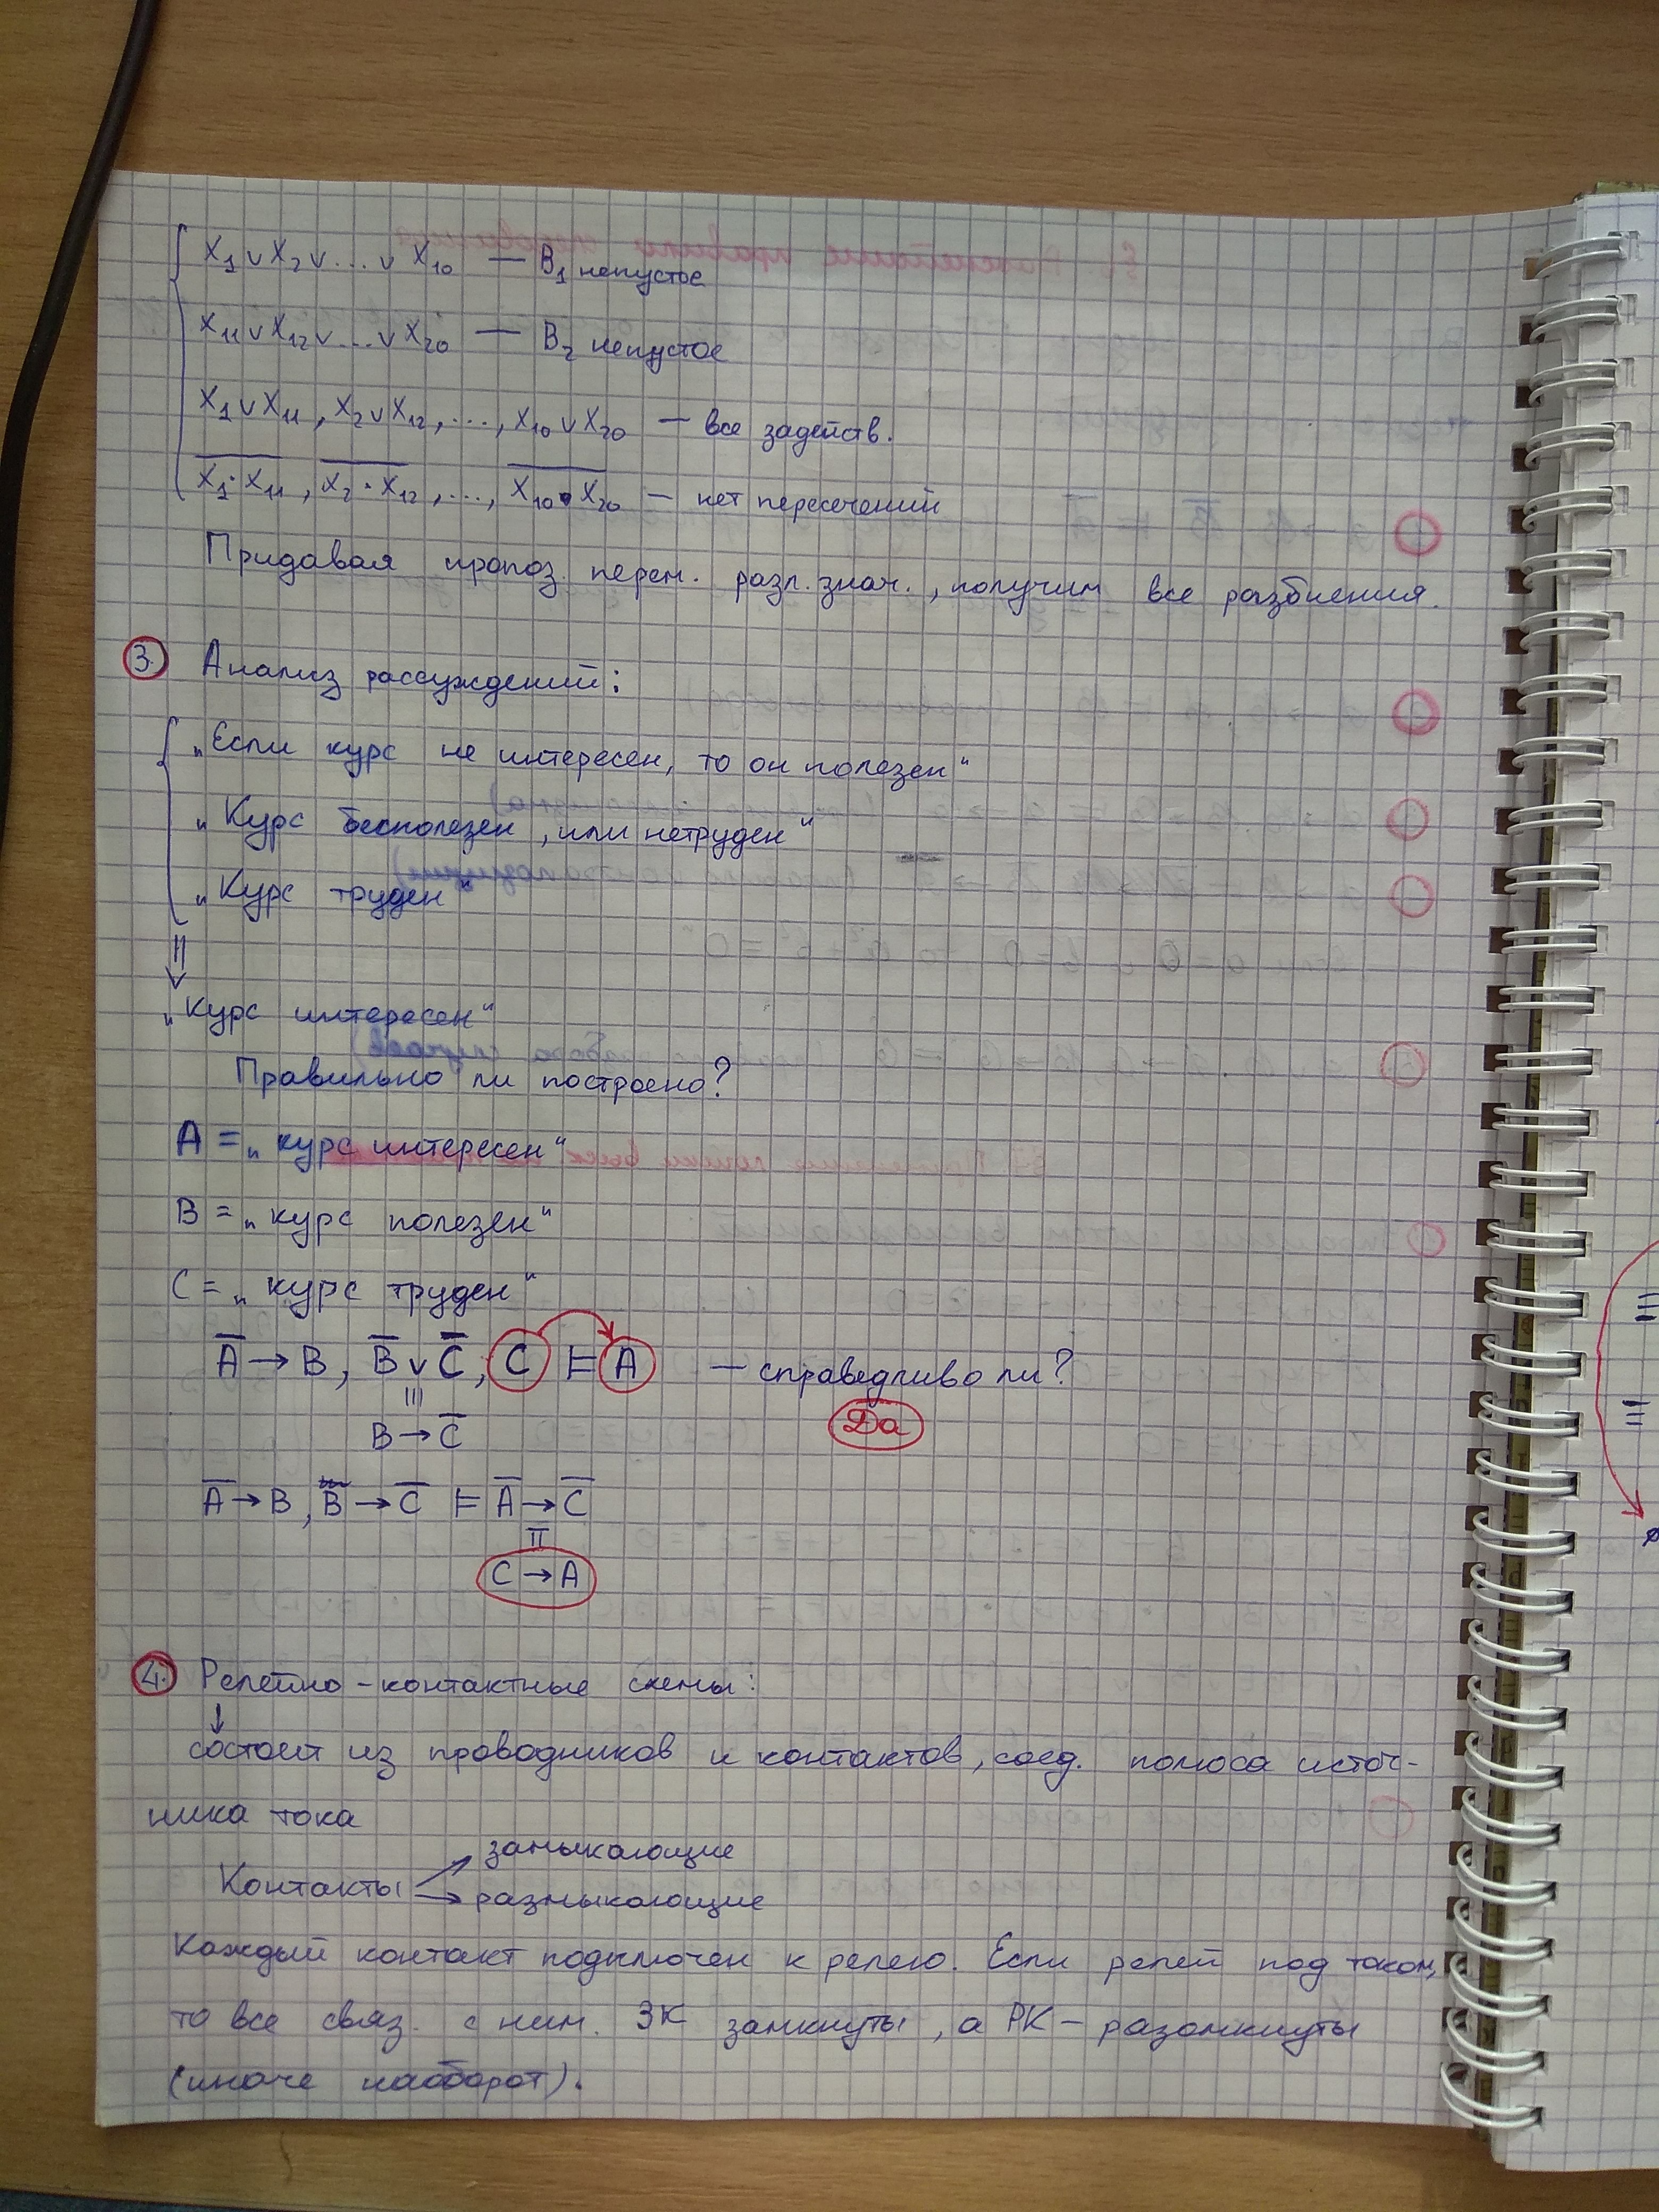 X₁ ∨ X₂ ∨ ... ∨ X₁₀ — B₁ непустое
X₁₁ ∨ X₁₂ ∨ ... ∨ X₂₀ — B₂ непустое
X₁ ∨ X₁₁, X₂ ∨ X₁₂, ..., X₁₀ ∨ X₂₀ — все задейств.
X̅₁̅·̅X̅₁̅₁̅, X̅₂̅·̅X̅₁̅₂̅, ..., X̅₁̅₀̅·̅X̅₂̅₀̅ — нет пересечений
Придавая пропоз. перем. разл. знач., получим все разбиения.
3. Анализ рассуждений:
„Если курс не интересен, то он полезен“
„Курс бесполезен, или нетруден“
„Курс труден“
⇓
„Курс интересен“
Правильно ли построено?
A = „курс интересен“
B = „курс полезен“
C = „курс труден“
A̅ → B, B̅ ∨ C̅, C ⊨ A — справедливо ли?
≡ Да
B → C̅
A̅ → B, B → C̅ ⊨ A̅ → C̅
≡
C → A
4. Релейно-контактные схемы:
↓
состоит из проводников и контактов, соед. полюса источ-
ника тока
замыкающие
Контакты
размыкающие
Каждый контакт подключен к релею. Если релей под током,
то все связ. с ним. ЗК замкнуты, а РК – разомкнуты
(иначе наоборот).